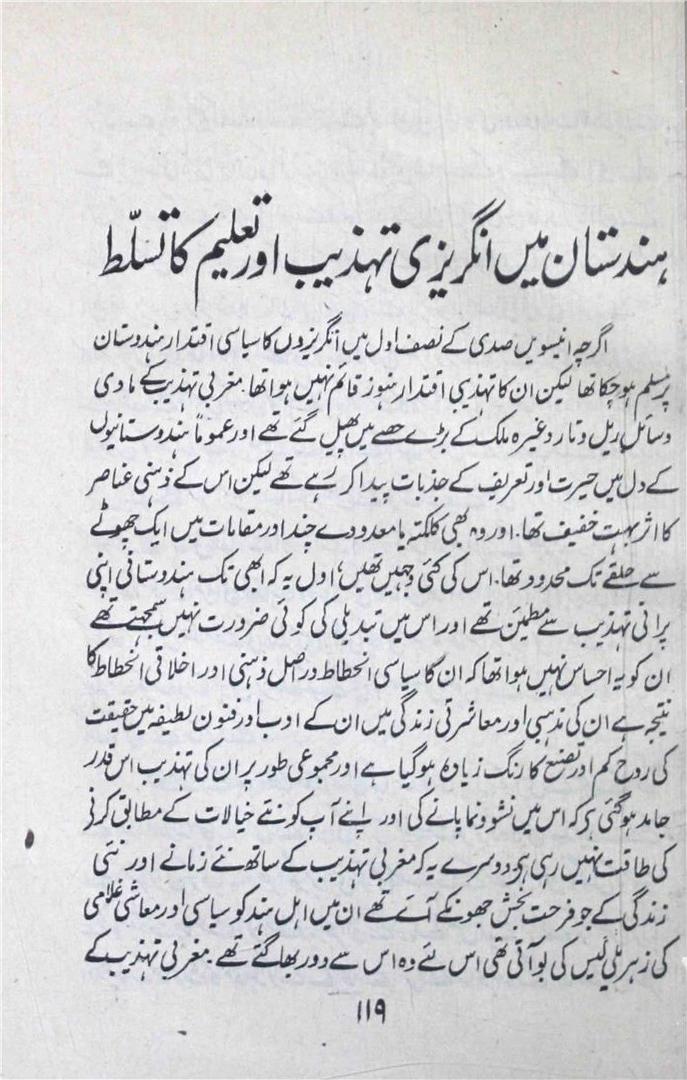 ہندستان میں انگریزی تہذیب اور تعلیم کا تسلّط
اگرچہ انیسویں صدی کے نصف اول میں انگریزوں کا سیاسی اقتدار ہندوستان
پر مسلم ہو چکا تھا لیکن ان کا تہذیبی اقتدار ہنوز قائم نہیں ہوا تھا۔ مغربی تہذیب کے مادی
وسائل ریل و تار وغیرہ ملک کے بڑے حصے میں پھیل گئے تھے اور عموماً ہندوستانیوں
کے دل میں حیرت اور تعریف کے جذبات پیدا کر رہے تھے لیکن اس کے ذہنی عناصر
کا اثر بہت خفیف تھا۔ اور وہ بھی کلکتہ یا معدودے چند اور مقامات میں ایک چھوٹے
سے حلقے تک محدود تھا۔ اس کی کئی وجہیں تھیں؛ اول یہ کہ ابھی تک ہندوستانی اپنی
پرانی تہذیب سے مطمئن تھے اور اس میں تبدیلی کی کوئی ضرورت نہیں سمجھتے تھے
ان کو یہ احساس نہیں ہوا تھا کہ ان کا سیاسی انحطاط دراصل ذہنی اور اخلاقی انحطاط کا
نتیجہ ہے ان کی مذہبی اور معاشرتی زندگی میں ان کے ادب اور فنون لطیفہ میں حقیقت
کی روح کم اور تصنع کا رنگ زیادہ ہو گیا ہے اور مجموعی طور پر ان کی تہذیب اس قدر
جامد ہو گئی ہی کہ اس میں نشو و نما پانے کی اور اپنے آپ کو نئے خیالات کے مطابق کرنی
کی طاقت نہیں رہی ہی دوسرے یہ کہ مغربی تہذیب کے ساتھ نئے زمانے اور نئی
زندگی کے جو فرحت بخش جھونکے آتے تھے ان میں اہل ہند کو سیاسی اور معاشی غلامی
کی زہریلی گیس کی بو آتی تھی اس لئے وہ اس سے دور بھاگتے تھے۔ مغربی تہذیب کے
۱۱۹